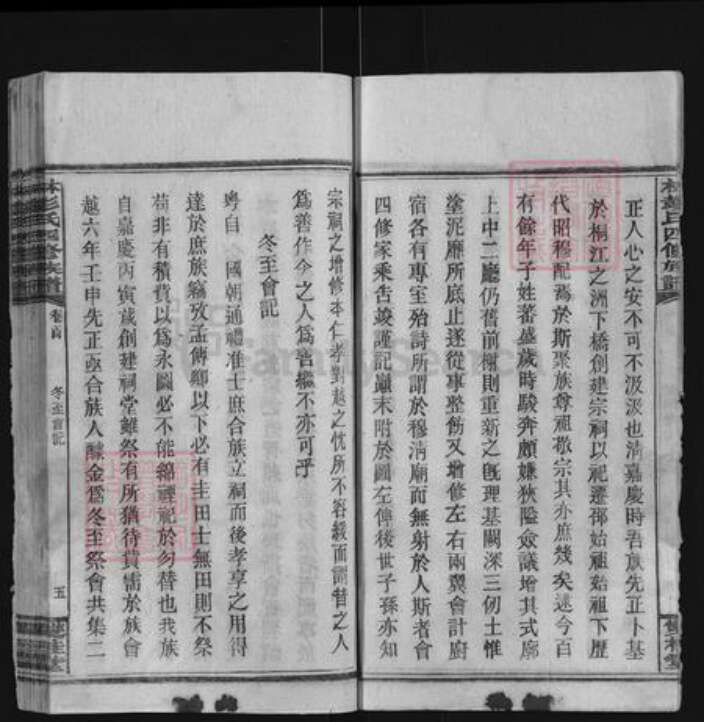 正人心之安不可不汲汲也清嘉慶時吾族先正卜基
於桐江之洲下橋創建宗祠以祀遷邵始祖始祖下歷
代昭穆配焉於斯聚族尊祖敬宗其亦庶幾矣迄今百
有餘年子姓蕃盛歲時駿奔頗嫌狹隘僉議增其式廓
上中二廳仍舊前棚則重新之旣理基闢深三仞土惟
塗泥靡所底止遂從事整飭又增修左右兩翼會計廚
宿各有專室殆詩所謂於穆清廟而無射於人斯者會
四修家乘告竣謹記顚末附於圖左俾後世子孫亦知
宗祠之增修本仁孝對越之忱所不容緩而謂昔之人
爲善作今之人爲善繼不亦可乎
冬至會記
粤自 國朝通禮准士庶合族立祠而後孝享之用得
達於庶族竊攷孟傳卿以下必有圭田士無田則不祭
苟非有積費以爲永圖必不能綿禋祀於勿替也我族
自嘉慶丙寅歲創建祠堂雖祭有所猶待貲需於族會
越六年壬申先正亟合族人醵金爲冬至祭會共集二
林彭氏四修族譜
卷首
冬至會記
五
雙桂堂